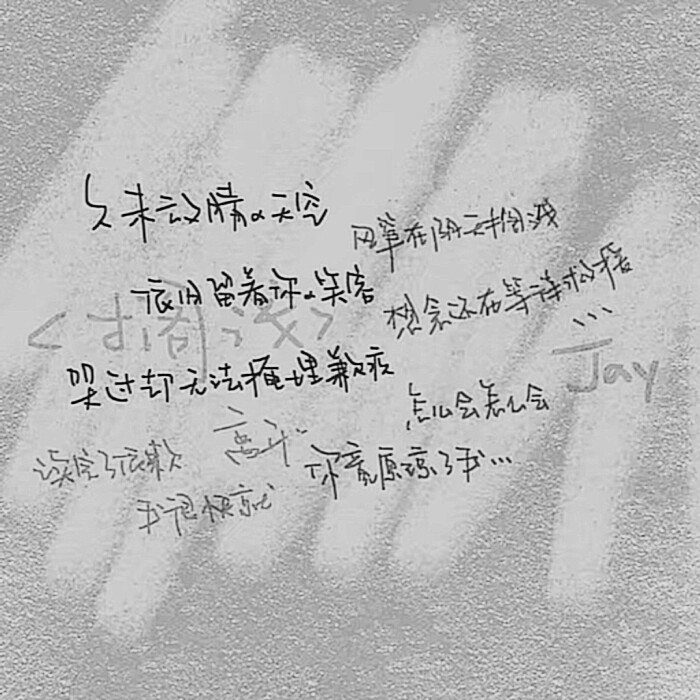 久未放晴的天空
风筝在阴天搁浅
依旧留着你的笑容
想念还在等待救援
...
<搁浅>
—Jay
哭过却无法掩埋歉疚
怎么会怎么会
你竟原谅了我...
读完了依赖
我很快就
离开